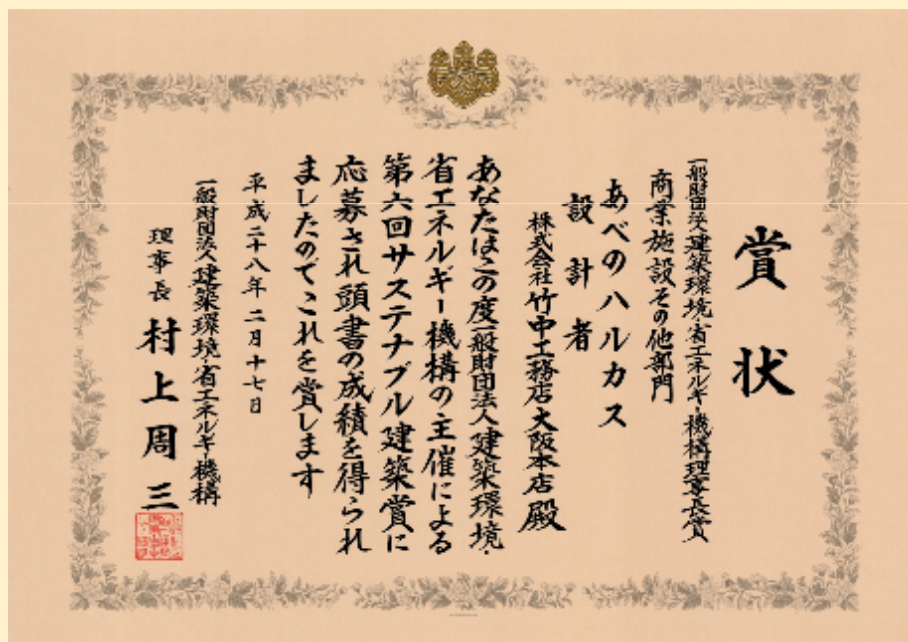 賞状
一般財団法人建築環境・省エネルギー機構理事長賞
商業施設その他部門
あべのハルカス
設計者
株式会社竹中工務店大阪本店殿
あなたはこの度一般財団法人建築環境・
省エネルギー機構の主催による
第六回サステナブル建築賞に
応募され頭書の成績を得られ
ましたのでこれを賞します
平成二十八年二月十七日
一般財団法人建築環境・省エネルギー機構
理事長 村上周三